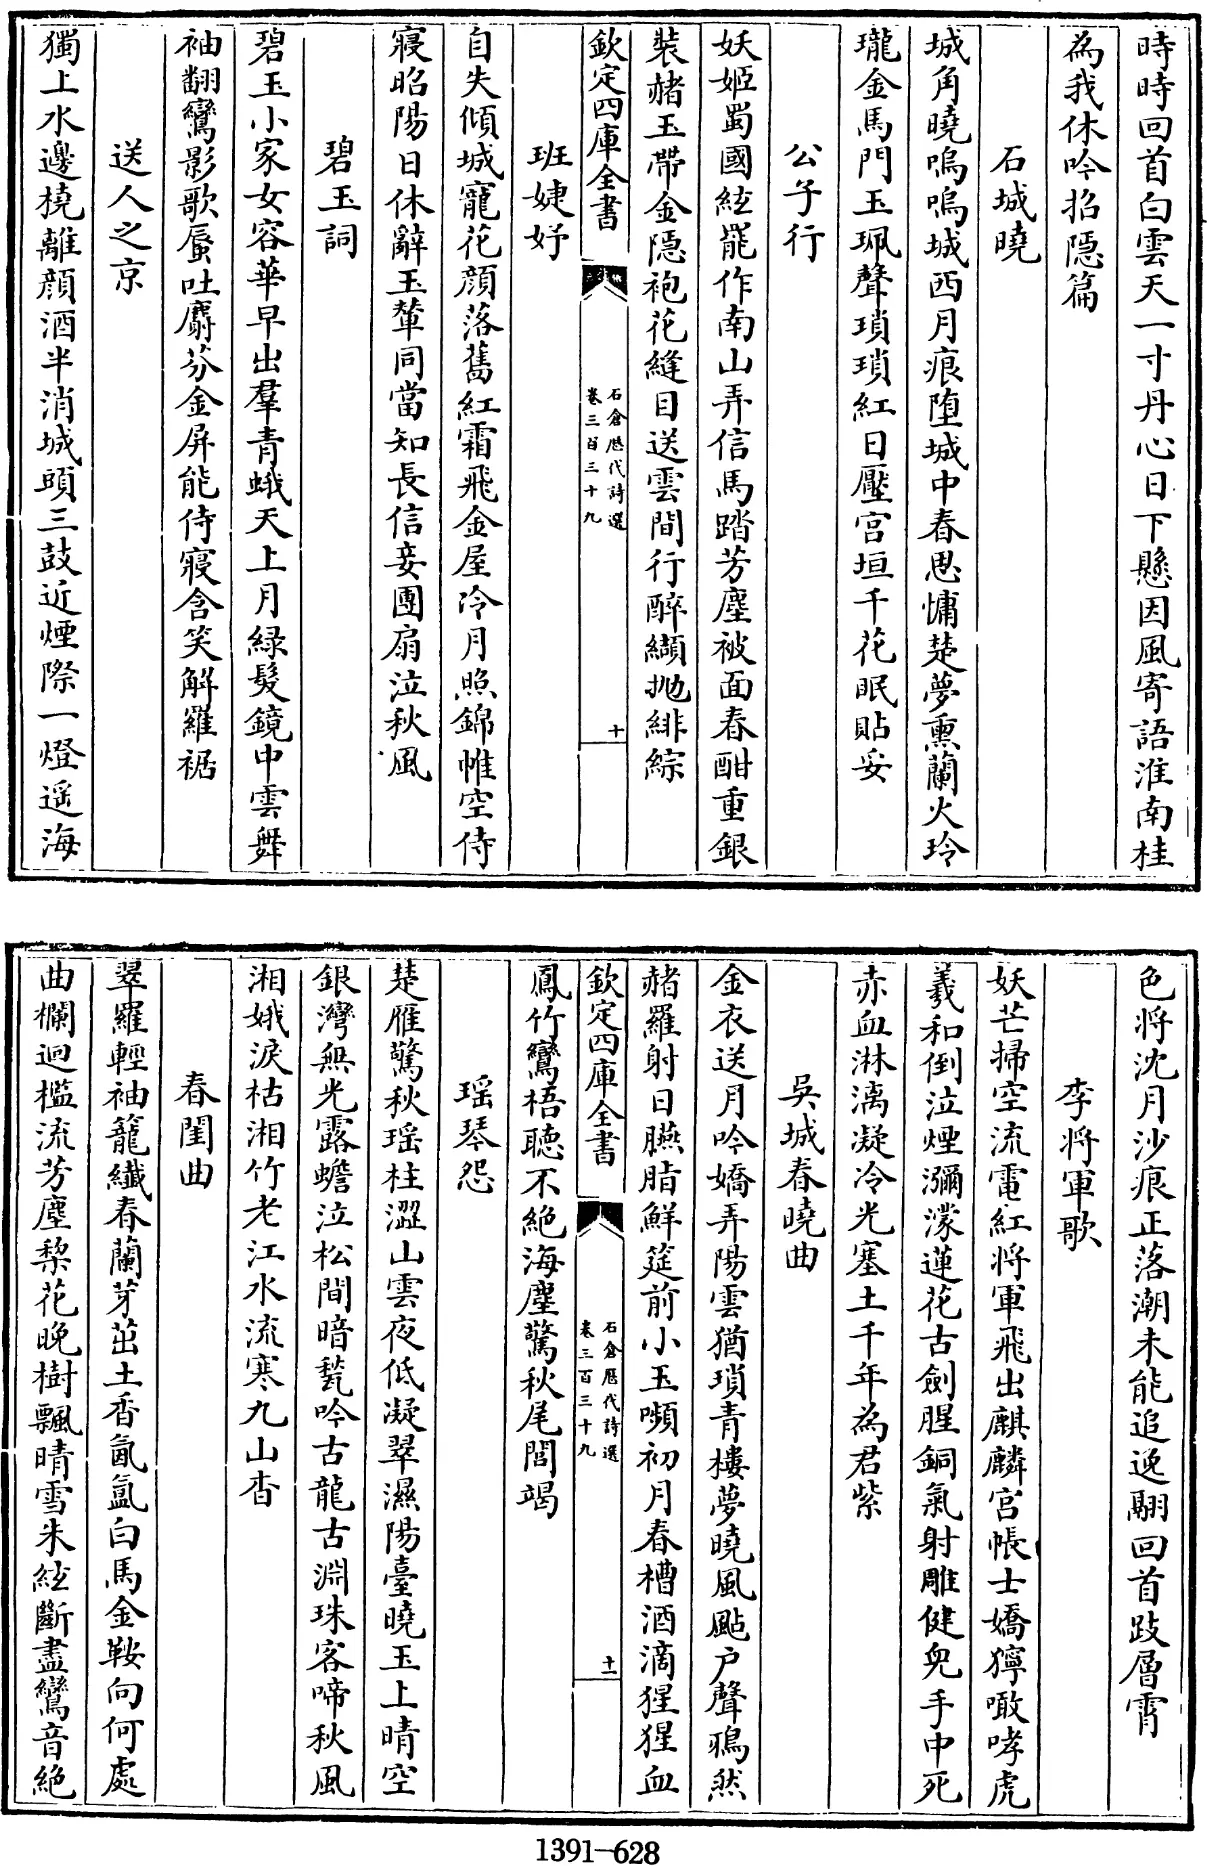 時時回首白雲天一寸丹心日下懸因風寄語淮南桂
為我休吟招隱篇
石城曉
城角曉嗚嗚城西月痕墮城中春思慵楚夢熏蘭火玲
瓏金馬門玉珮聲瑣瑣紅日壓宮垣千花眠貼妥
公子行
妖姬蜀國絃罷作南山弄信馬踏芳塵被面春酣重銀
裝赭玉帶金隱袍花縫目送雲間行醉纈拋緋綜
欽定四庫全書
石倉歷代詩選
卷三百三十九
十
班婕妤
自失傾城寵花顔落舊紅霜飛金屋冷月照錦帷空侍
寢昭陽日休辭玉輦同當知長信妾團扇泣秋風
碧玉詞
碧玉小家女容華早出羣青蛾天上月緑髮鏡中雲舞
袖翻鸞影歌唇吐麝芬金屏能侍寢含笑解羅裾
送人之京
獨上水邊橈離顔酒半消城頭三鼓近煙際一燈遥海
色將沈月沙痕正落潮未能追逸翮回首跂層霄
李將軍歌
妖芒掃空流電紅將軍飛出麒麟宮帳士嬌獰噉哮虎
羲和倒泣煙瀰濛蓮花古劍腥銅氣射雕健兒手中死
赤血淋漓凝冷光塞土千年為君紫
吳城春曉曲
金衣送月吟嬌弄陽雲猶瑣青樓夢曉風颭戶聲鴉然
赭羅射日臙脂鮮筵前小玉嚬初月春槽酒滴猩猩血
欽定四庫全書
石倉歷代詩選
卷三百三十九
十一
鳳竹鸞梧聽不絶海塵驚秋尾閭竭
瑶琴怨
楚雁驚秋瑶柱澀山雲夜低凝翠濕陽臺曉玉上晴空
銀灣無光露蟾泣松間暗甃吟古龍古淵珠客啼秋風
湘娥淚枯湘竹老江水流寒九山杳
春閨曲
翠羅輕袖籠纖春蘭芽茁土香氤氲白馬金鞍向何處
曲欄迴檻流芳塵梨花晚樹飄晴雪朱絃斷盡鸞音絶
1391-628